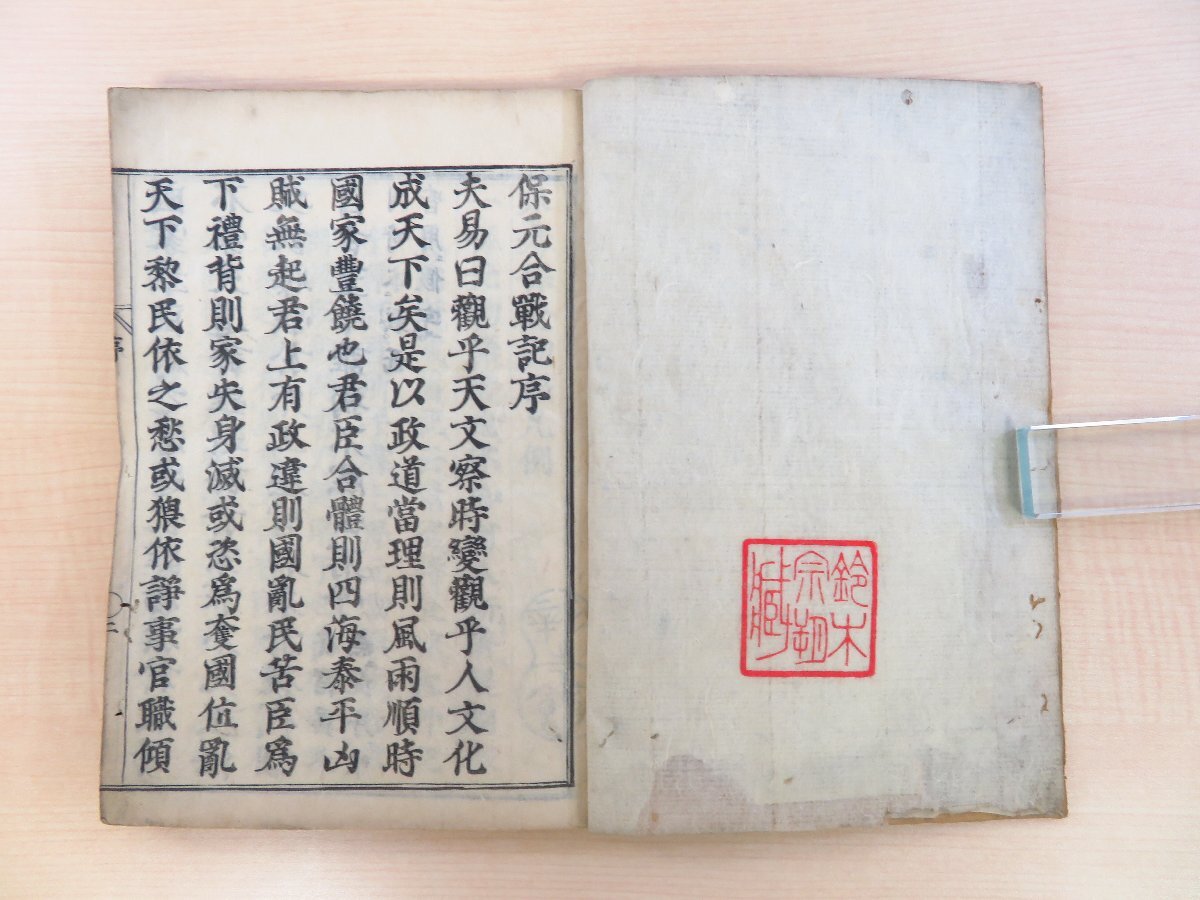 鈴木
宗
保元合戰記序
夫易曰觀乎天文察時變觀乎人文化
成天下矣是以政道當理則風雨順時
國家豐饒也君臣合體則四海泰平凶
賊無起君上有政違則國亂民苦臣爲
下禮背則家失身滅或恣爲奪國位亂
天下黎民依之愁或猥依諍事官職傾
序